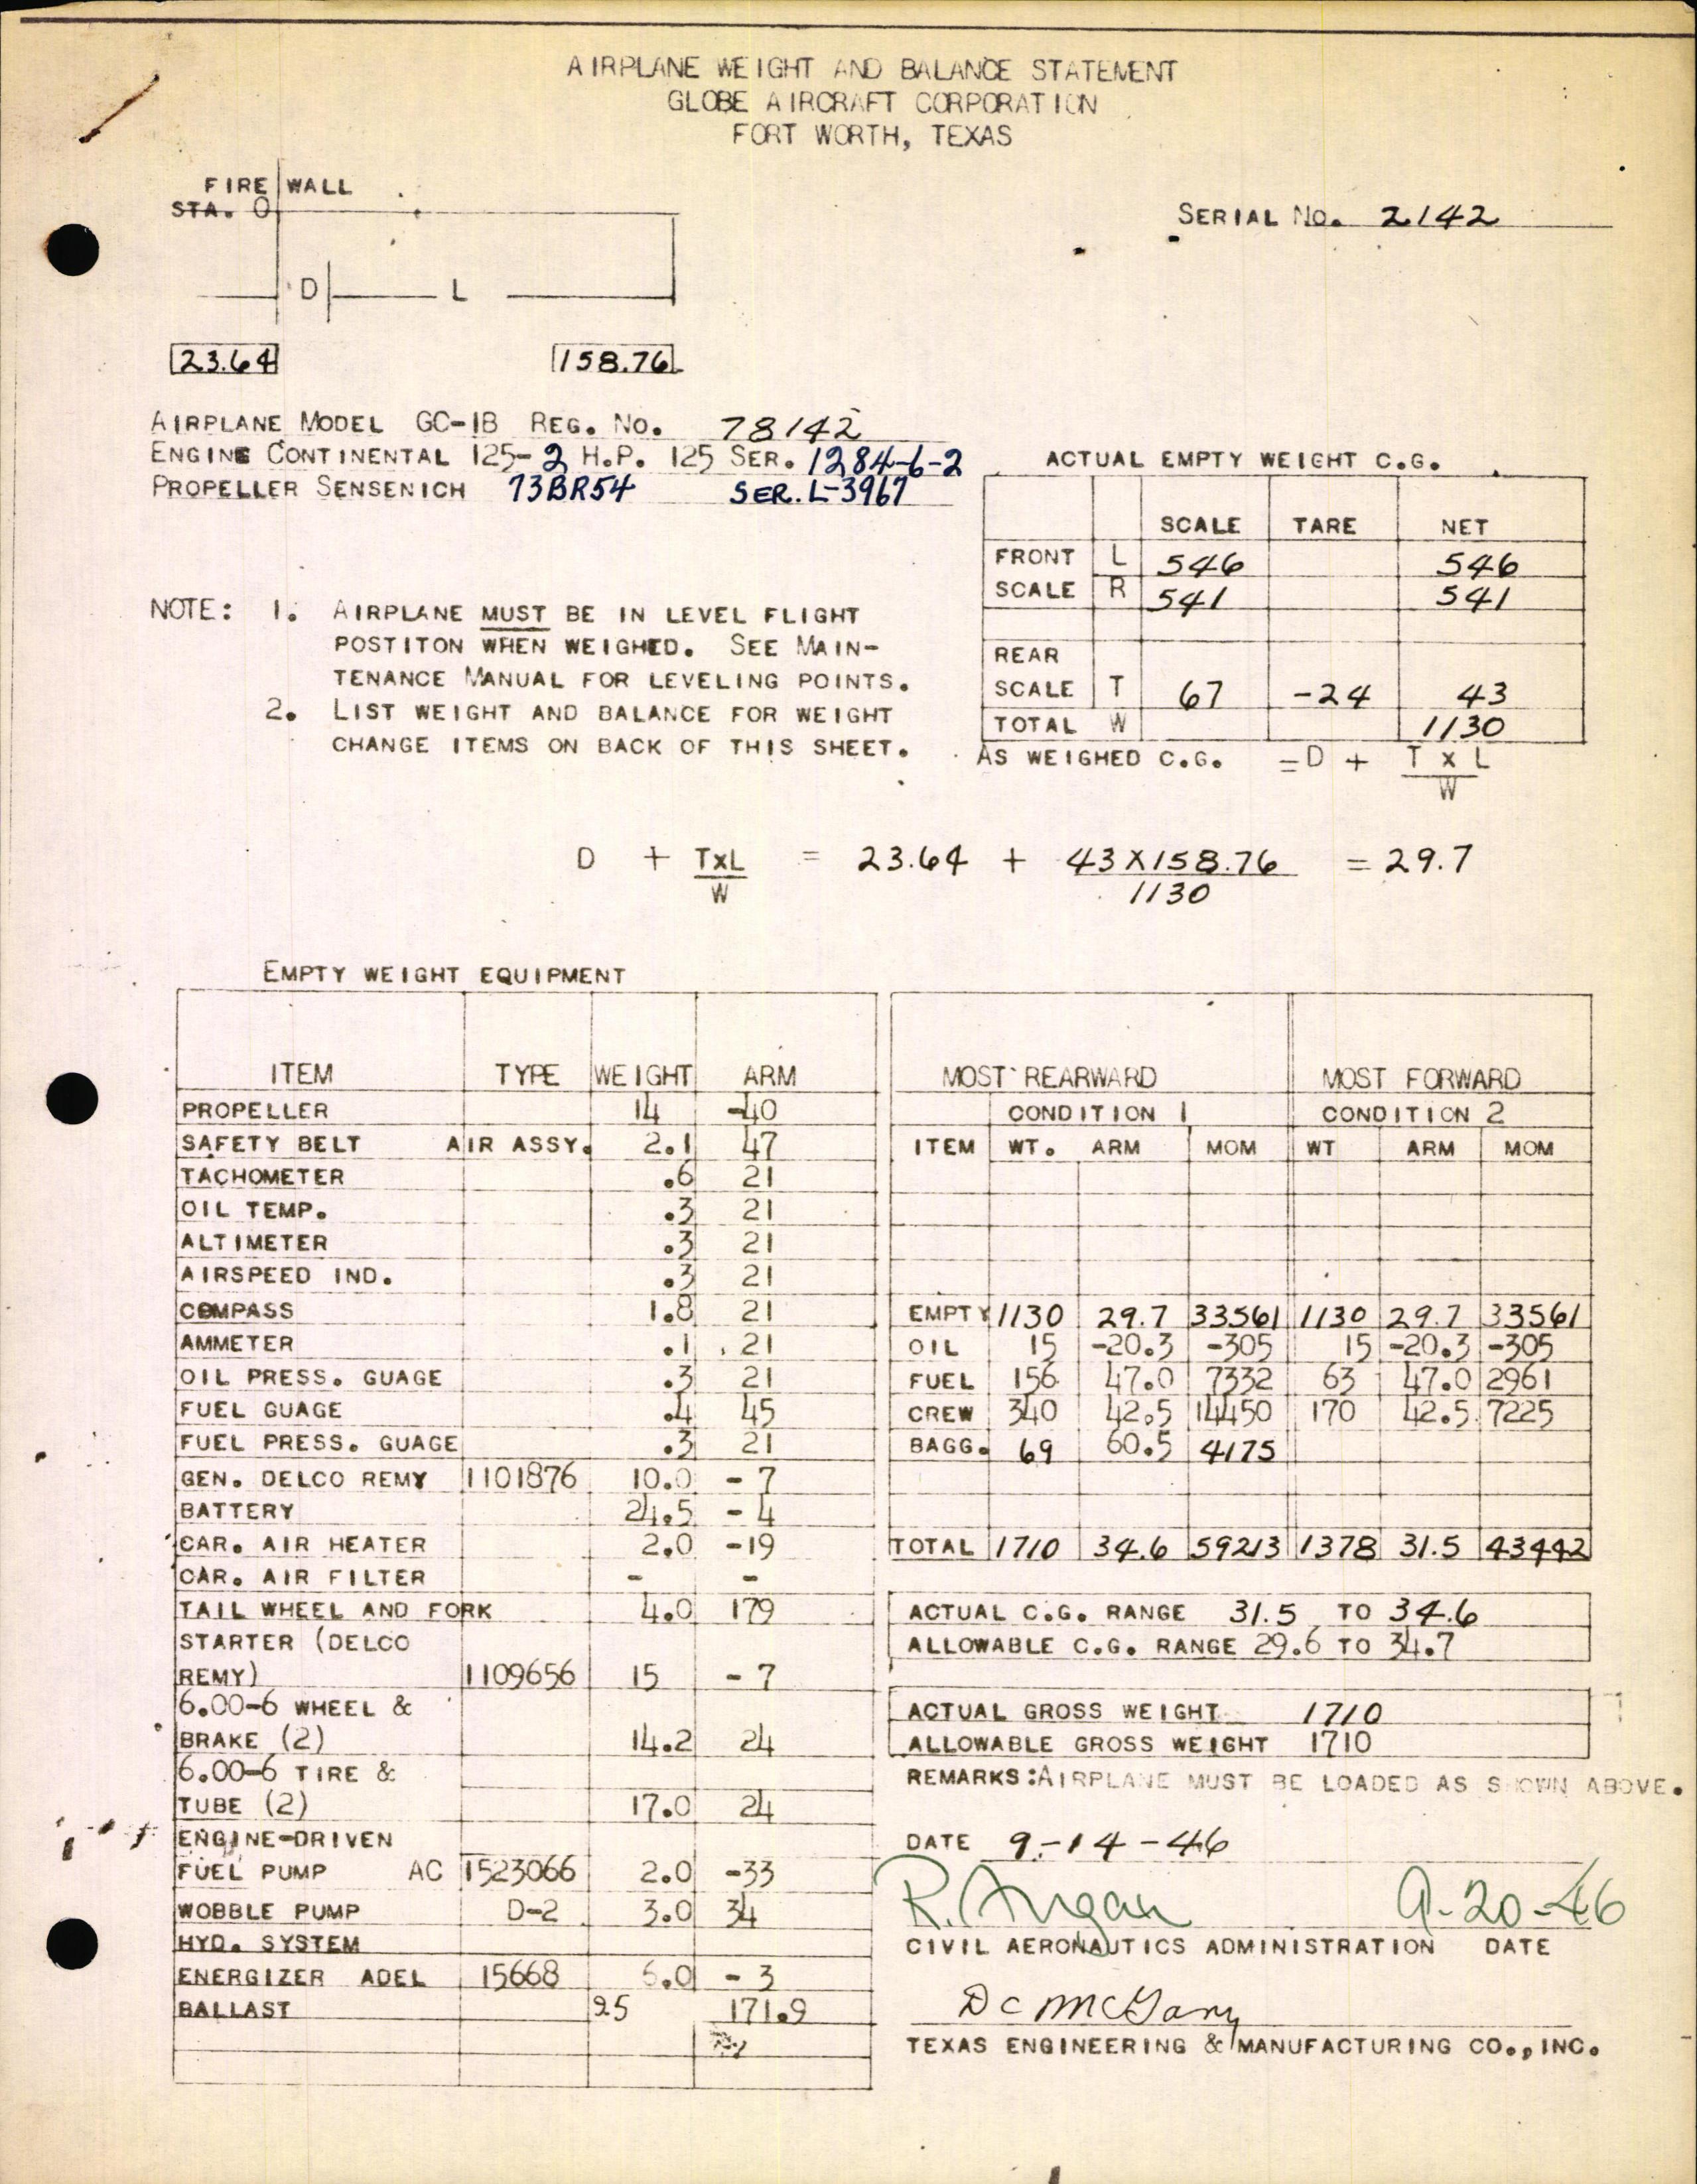 AIRPLANE WEIGHT AND BALANCE STATEMENT
GLOBE AIRCRAFT CORPORATION
FORT WORTH, TEXAS
FIRE WALL
STA. 0
SERIAL NO. 2142
D L
23.64 158.76
AIRPLANE MODEL GC-1B REG. NO. 78142
ENGINE CONTINENTAL 125-2 H.P. 125 SER. 1284-6-2
PROPELLER SENSENICH 73BR54 SER. L-3967
ACTUAL EMPTY WEIGHT C.G.
SCALE TARE NET
FRONT L 546 546
SCALE R 541 541
REAR
SCALE T 67 -24 43
TOTAL W 1130
AS WEIGHED C.G. = D + T X L
W
NOTE: 1. AIRPLANE MUST BE IN LEVEL FLIGHT
POSTITON WHEN WEIGHED. SEE MAIN-
TENANCE MANUAL FOR LEVELING POINTS.
2. LIST WEIGHT AND BALANCE FOR WEIGHT
CHANGE ITEMS ON BACK OF THIS SHEET.
D + TxL = 23.64 + 43 X 158.76 = 29.7
W 1130
EMPTY WEIGHT EQUIPMENT
ITEM TYPE WEIGHT ARM
PROPELLER 14 -40
SAFETY BELT AIR ASSY. 2.1 47
TACHOMETER .6 21
OIL TEMP. .3 21
ALTIMETER .3 21
AIRSPEED IND. .3 21
COMPASS 1.8 21
AMMETER .1 21
OIL PRESS. GUAGE .3 21
FUEL GUAGE .4 45
FUEL PRESS. GUAGE .3 21
GEN. DELCO REMY 1101876 10.0 - 7
BATTERY 24.5 - 4
CAR. AIR HEATER 2.0 -19
CAR. AIR FILTER - -
TAIL WHEEL AND FORK 4.0 179
STARTER (DELCO
REMY) 1109656 15 - 7
6.00-6 WHEEL &
BRAKE (2) 14.2 24
6.00-6 TIRE &
TUBE (2) 17.0 24
ENGINE-DRIVEN
FUEL PUMP AC 1523066 2.0 -33
WOBBLE PUMP D-2 3.0 34
HYD. SYSTEM
ENERGIZER ADEL 15668 6.0 - 3
BALLAST 25 171.9
MOST REARWARD MOST FORWARD
CONDITION 1 CONDITION 2
ITEM WT. ARM MOM WT ARM MOM
EMPTY 1130 29.7 33561 1130 29.7 33561
OIL 15 -20.3 -305 15 -20.3 -305
FUEL 156 47.0 7332 63 47.0 2961
CREW 340 42.5 14450 170 42.5 7225
BAGG. 69 60.5 4175
TOTAL 1710 34.6 59213 1378 31.5 43442
ACTUAL C.G. RANGE 31.5 TO 34.6
ALLOWABLE C.G. RANGE 29.6 TO 34.7
ACTUAL GROSS WEIGHT 1710
ALLOWABLE GROSS WEIGHT 1710
REMARKS: AIRPLANE MUST BE LOADED AS SHOWN ABOVE.
DATE 9-14-46
R. 9-20-46
CIVIL AERONAUTICS ADMINISTRATION DATE
D C McGary
TEXAS ENGINEERING & MANUFACTURING CO., INC.